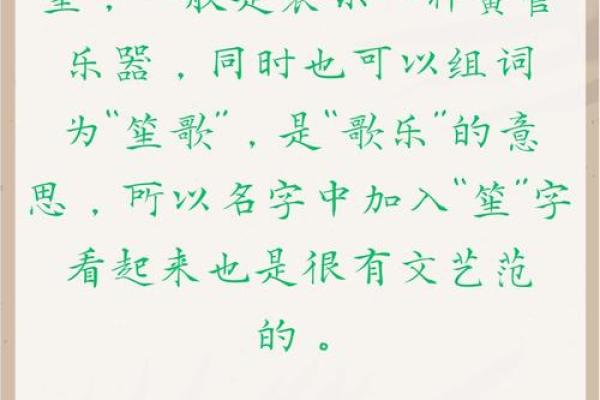 笙，一般是表示一种簧管
乐器，同时也可以组词
为“笙歌”，是“歌乐”的意
思，所以名字中加入“笙”字
看起来也是很有文艺范
的。